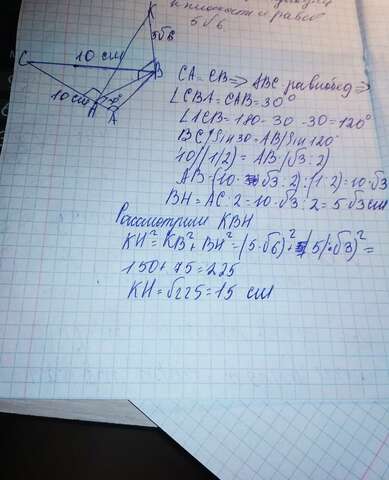 к плоскости и равен
5√6
K
5√6
C
10 см
B
10 см
H
A
CA = CB => ABC равнобед =>
∠CBA = CAB = 30°
∠ACB = 180 - 30 - 30 = 120°
BC/sin30 = AB/sin120°
10/(1/2) = AB/(√3:2)
AB = (10·√3:2):(1:2) = 10·√3
BH = AC:2 = 10·√3:2 = 5√3 см
Рассмотрим KBH
KH² = KB² + BH² = (5·√6)² + (5·√3)² =
150 + 75 = 225
KH = √225 = 15 см